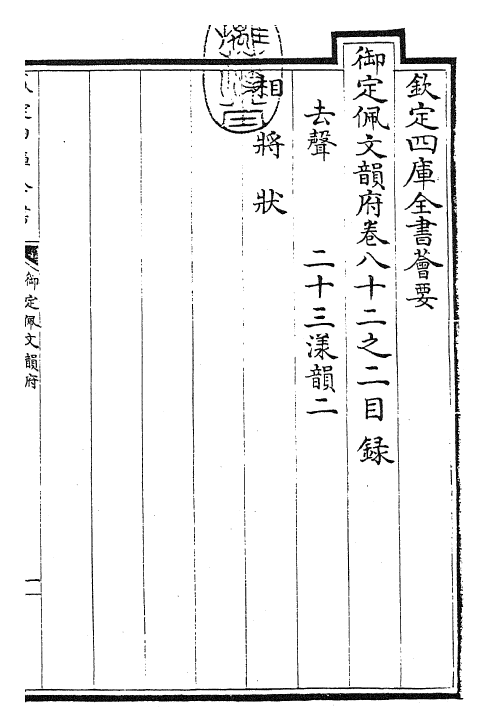 欽定四庫全書薈要
御定佩文韻府卷八十二之二目録
去聲 二十三漾韻二
相 將 狀
御定佩文韻府
一